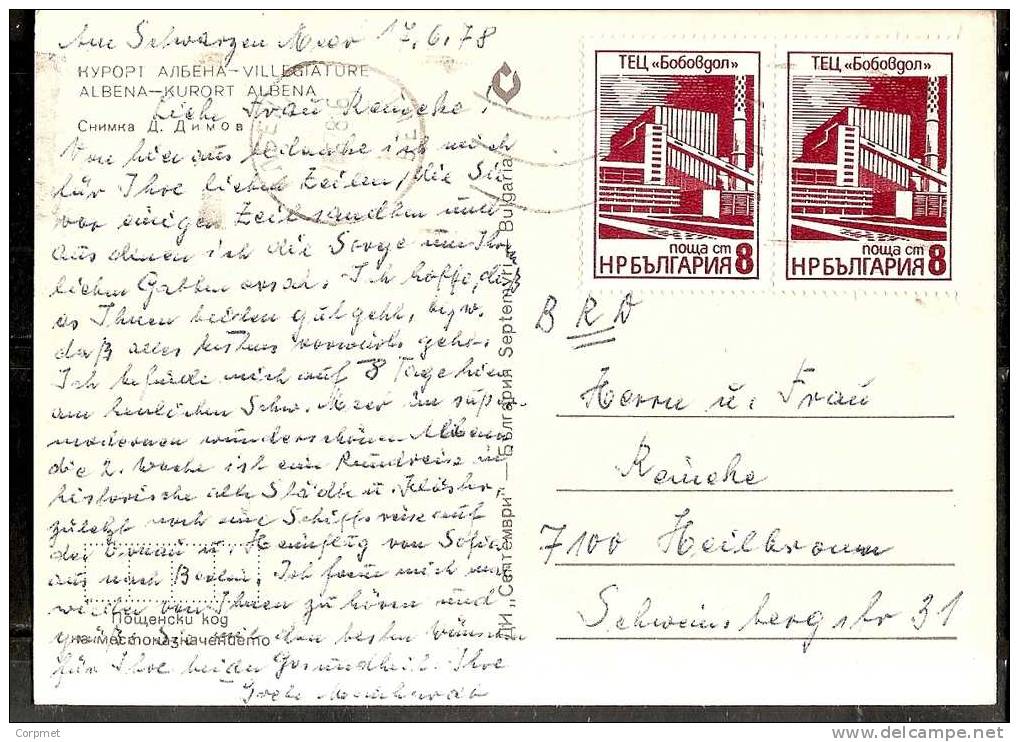 Am Schwarzen Meer 17.6.78
КУРОРТ АЛБЕНА—VILLEGIATURE
ALBENA—KURORT ALBENA
Снимка Д. Димов
Liebe Frau Reinecke!
Von hier aus bedanke ich mich
für Ihre lieben Zeilen, die Sie
vor einiger Zeit sandten und
aus denen ich die Sorge um Ihren
lieben Gatten ersah. Ich hoffe, daß
es Ihnen beiden gut geht, bzw.
daß alles bestens vorwärts geht.
Ich befinde mich auf 8 Tage hier
am herrlichen Schw. Meer im super-
modernen wunderschönen Albena
die 2. Woche ist ein Rundreise in
historische alte Städte u. Klöster,
zuletzt noch eine Schiffsreise auf
der Donau u. Heimflug von Sofia
aus nach Berlin. Ich freue mich
wieder von Ihnen zu hören und
grüße Sie mit den besten Wünschen
für Ihre beider Gesundheit. Ihre
Пощенски код
на местоназначението
ДИ „Септември" — България Septemvri, Bulgaria
ТЕЦ «Бобовдол»
поща ст
НРБЪЛГАРИЯ 8
ТЕЦ «Бобовдол»
поща ст
НРБЪЛГАРИЯ 8
BRD
Herrn u. Frau
Reinecke
7100 Heilbronn
Schweinsbergstr 31
Corpmet
www.delcampe.net